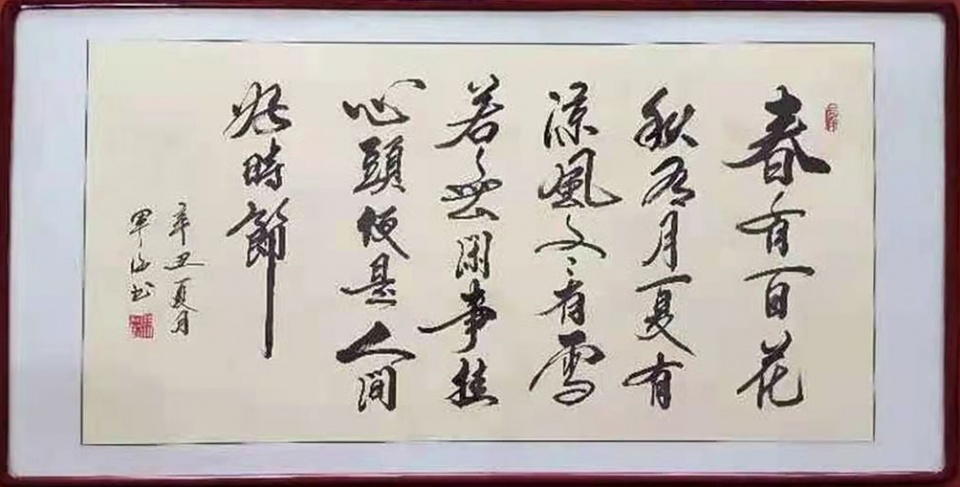 春有百花
秋有月夏有
凉風冬有雪
若無闲事挂
心頭便是人间
好時節
辛丑夏月
军海书